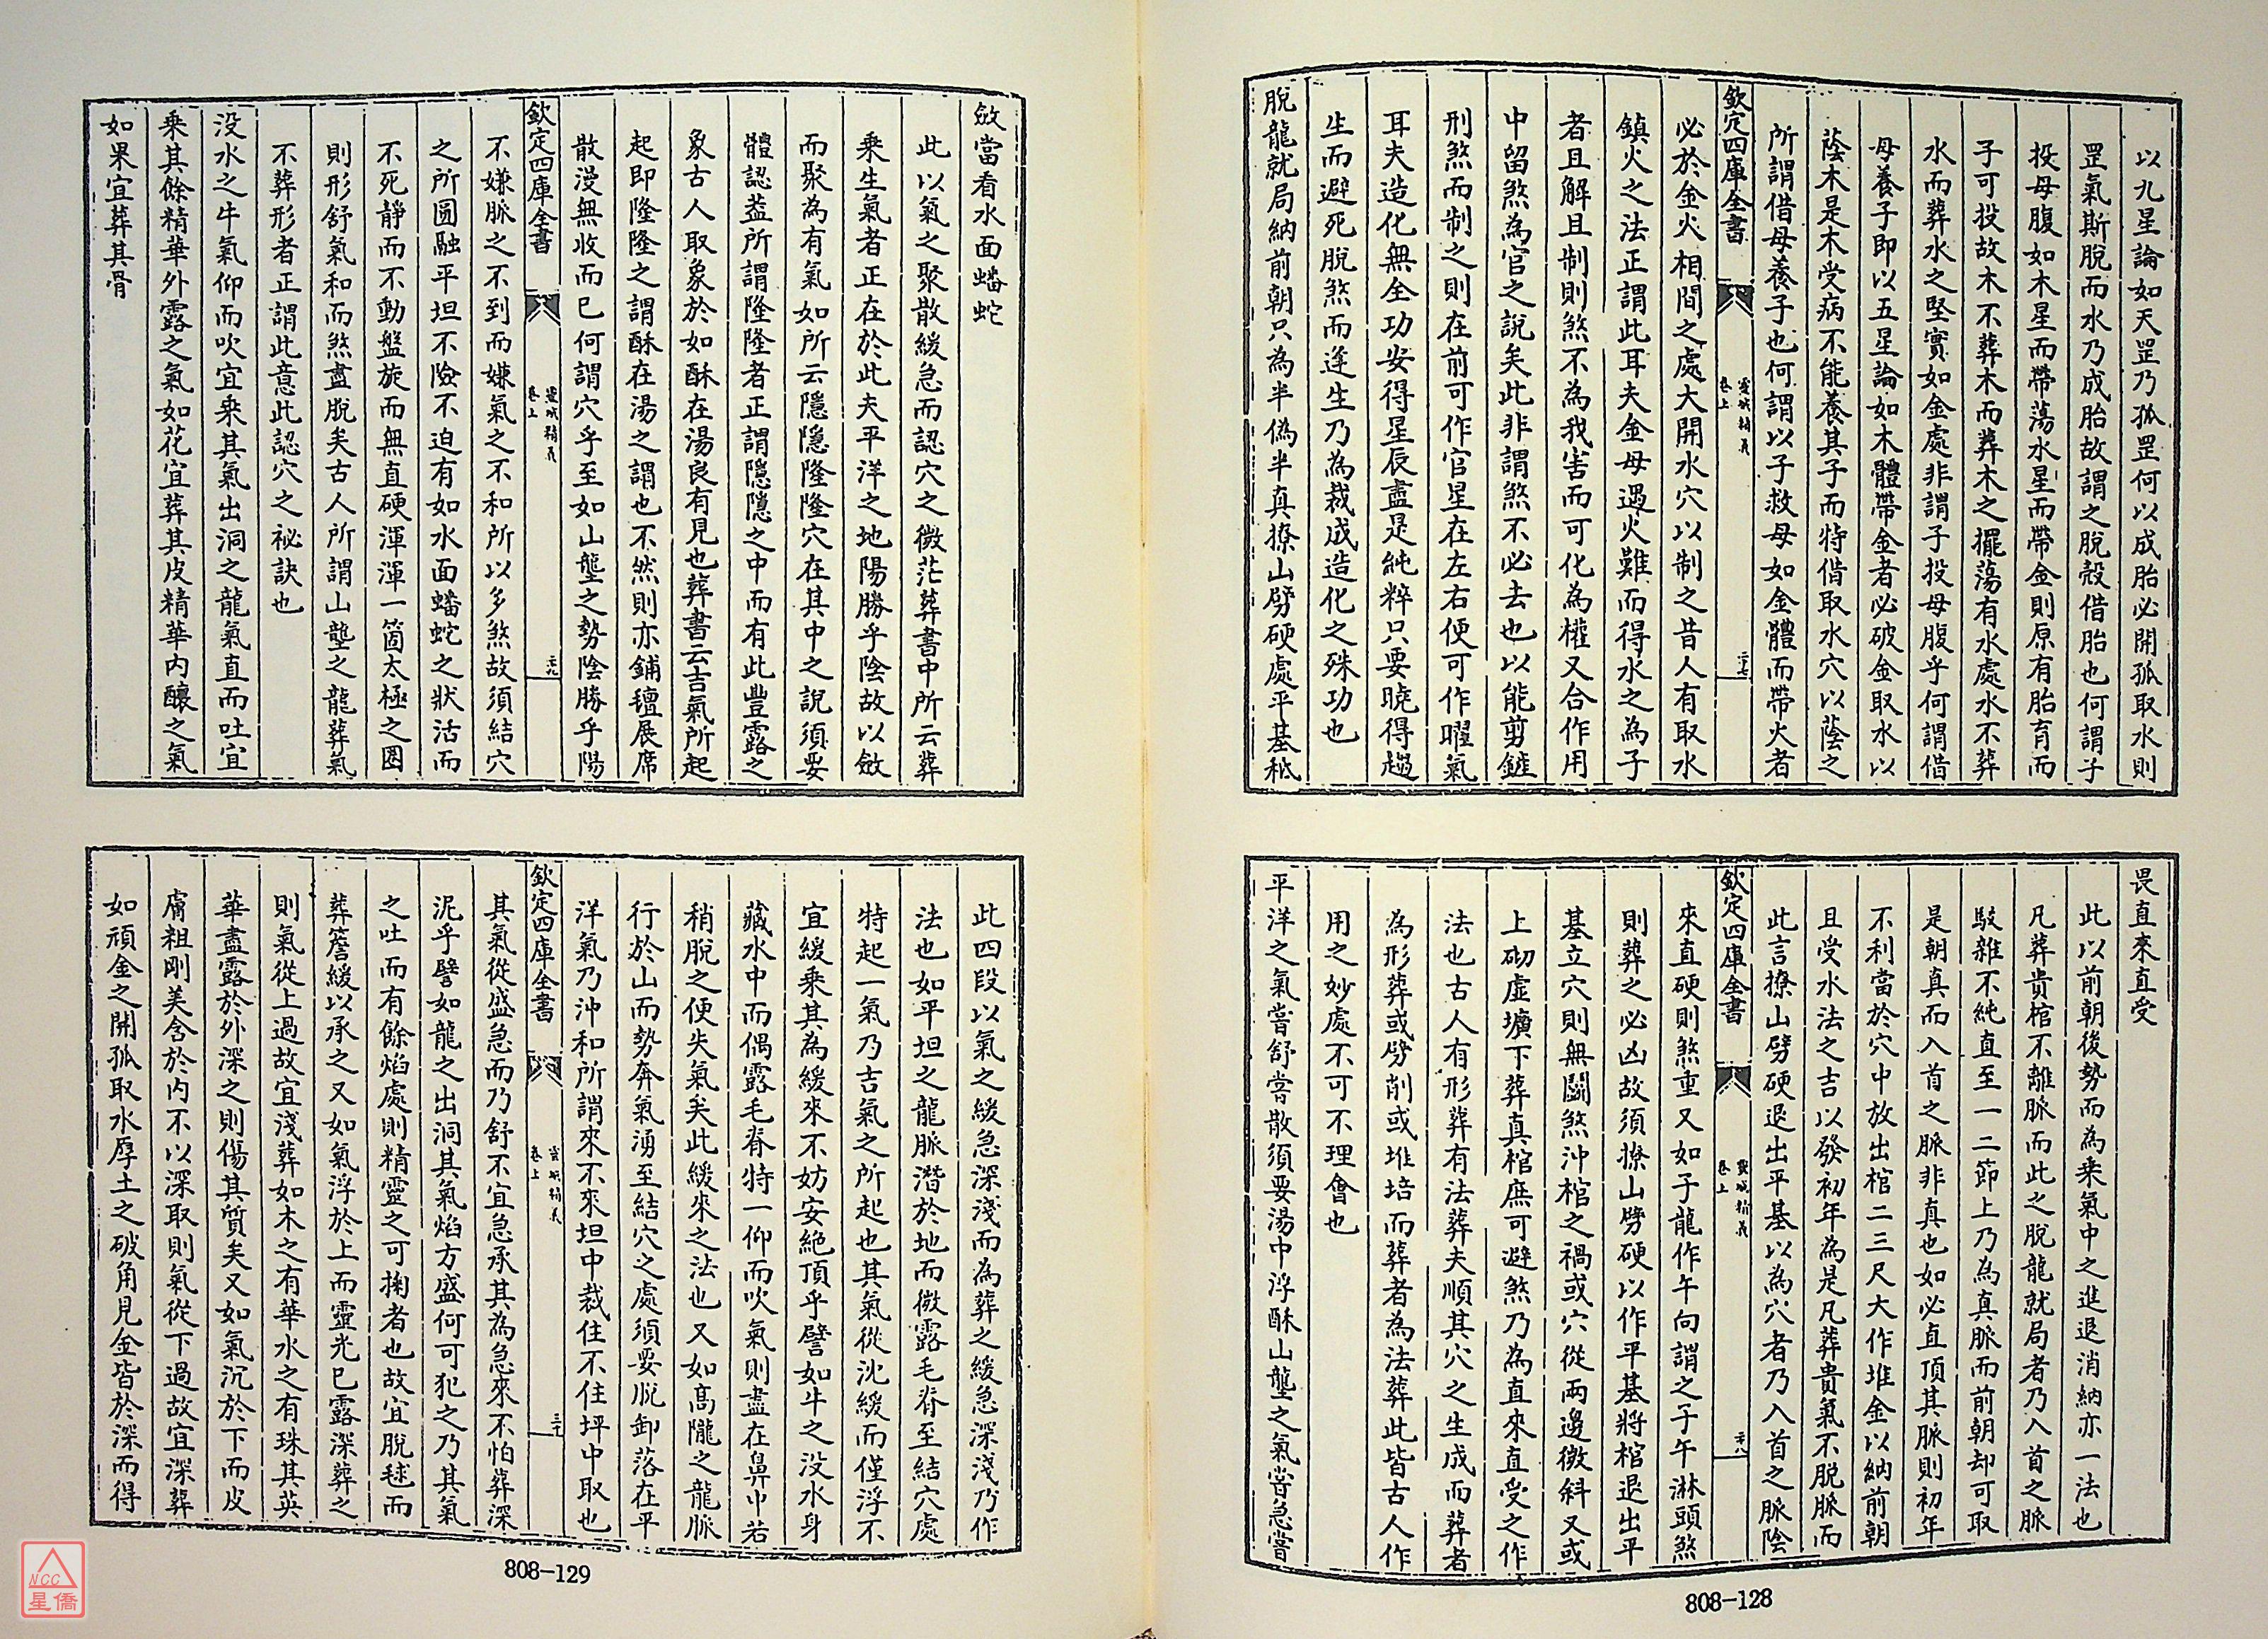 以九星論如天罡乃孤罡何以成胎必開孤取水則
罡氣斯脫而水乃成胎故謂之脫殼借胎也何謂子
投母腹如木星而帶蕩水星而帶金則原有胎育而
子可投故木不葬木而葬木之擺蕩有水處水不葬
水而葬水之堅實如金處非謂子投母腹乎何謂借
母養子即以五星論如木體帶金者必破金取水以
蔭木是木受病不能養其子而特借取水穴以蔭之
所謂借母養子也何謂以子救母如金體而帶火者
欽定四庫全書
靈城精義
卷上
二十七
必於金火相間之處大開水穴以制之昔人有取水
鎮火之法正謂此耳夫金母遇火難而得水之為子
者且解且制則煞不為我害而可化為權又合作用
中留煞為官之說矣此非謂煞不必去也以能剪鏟
刑煞而制之則在前可作官星在左右便可作曜氣
耳夫造化無全功安得星辰盡是純粹只要曉得趨
生而避死脫煞而逢生乃為裁成造化之殊功也
脫龍就局納前朝只為半偽半真撩山劈硬處平基秪
畏直來直受
此以前朝後勢而為乘氣中之進退消納亦一法也
凡葬貴棺不離脈而此之脫龍就局者乃入首之脈
駁雜不純直至一二節上乃為真脈而前朝却可取
是朝真而入首之脈非真也如必直頂其脈則初年
不利當於穴中放出棺二三尺大作堆金以納前朝
且受水法之吉以發初年為是凡葬貴氣不脫脈而
此言撩山劈硬退出平基以為穴者乃入首之脈陰
欽定四庫全書
靈城精義
卷上
二十八
來直硬則煞重又如子龍作午向謂之子午淋頭煞
則葬之必凶故須撩山劈硬以作平基將棺退出平
基立穴則無鬬煞沖棺之禍或穴從兩邊微斜又或
上砌虛壙下葬真棺庶可避煞乃為直來直受之作
法也古人有形葬有法葬夫順其穴之生成而葬者
為形葬或劈削或堆培而葬者為法葬此皆古人作
用之妙處不可不理會也
平洋之氣嘗舒嘗散須要湯中浮酥山壟之氣嘗急嘗
斂當看水面蟠蛇
此以氣之聚散緩急而認穴之微茫葬書中所云葬
乘生氣者正在於此夫平洋之地陽勝乎陰故以斂
而聚為有氣如所云隱隱隆隆穴在其中之說須要
體認葢所謂隆隆者正謂隱隱之中而有此豐露之
象古人取象於如酥在湯良有見也葬書云吉氣所起
起即隆隆之謂酥在湯之謂也不然則亦鋪氊展席
散漫無收而已何謂穴乎至如山壟之勢陰勝乎陽
欽定四庫全書
靈城精義
卷上
二十九
不嫌脈之不到而嫌氣之不和所以多煞故須結穴
之所圓融平坦不險不迫有如水面蟠蛇之狀活而
不死靜而不動盤旋而無直硬渾渾一箇太極之圈
則形舒氣和而煞盡脫矣古人所謂山壟之龍葬氣
不葬形者正謂此意此認穴之祕訣也
没水之牛氣仰而吹宜乘其氣出洞之龍氣直而吐宜
乘其餘精華外露之氣如花宜葬其皮精華内釀之氣
如果宜葬其骨
此四段以氣之緩急深淺而為葬之緩急深淺乃作
法也如平坦之龍脈潛於地而微露毛脊至結穴處
特起一氣乃吉氣之所起也其氣從沈緩而僅浮不
宜緩乘其為緩來不妨安絶頂乎譬如牛之没水身
藏水中而偶露毛脊特一仰而吹氣則盡在鼻中若
稍脫之便失氣矣此緩來之法也又如髙隴之龍脈
行於山而勢奔氣湧至結穴之處須要脱卸落在平
洋氣乃沖和所謂來不來坦中裁住不住坪中取也
欽定四庫全書
靈城精義
卷上
三十
其氣從盛急而乃舒不宜急承其為急來不怕葬深
泥乎譬如龍之出洞其氣焰方盛何可犯之乃其氣
之吐而有餘焰處則精靈之可掬者也故宜脫毬而
葬簷緩以承之又如氣浮於上而靈光已露深葬之
則氣從上過故宜淺葬如木之有華水之有珠其英
華盡露於外深之則傷其質矣又如氣沉於下而皮
膚粗剛美含於内不以深取則氣從下過故宜深葬
如頑金之開孤取水厚土之破角見金皆於深而得
808-128
808-129
NCC
星僑